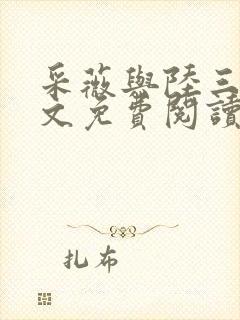 采薇與陸三
文免費閱讀
扎布